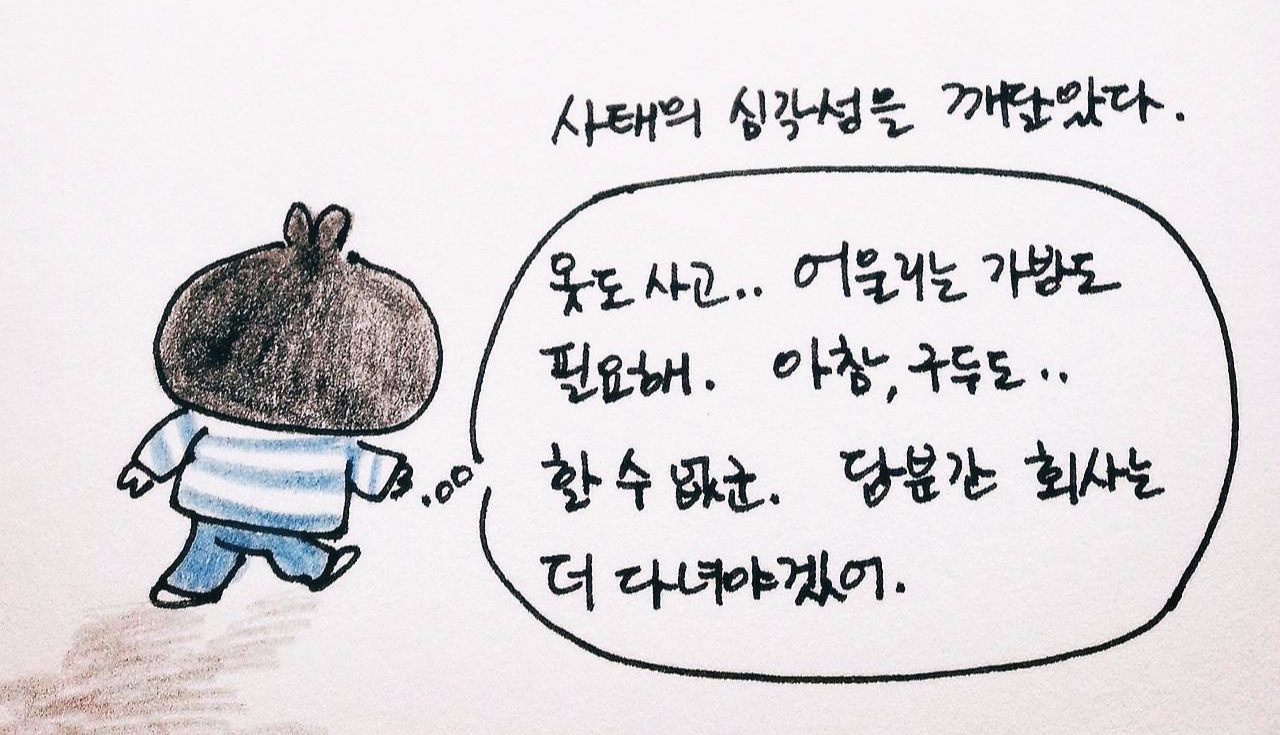 사태의 심각성을 깨달았다.
옷도 사고.. 어울리는 가방도
필요해. 아참, 구두도..
할 수 없군. 당분간 회사는
더 다녀야겠어.